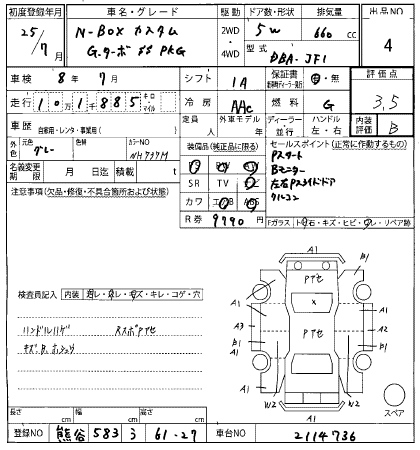 初度登録年月 車名・グレード 駆動 ドア数・形状 排気量 出品NO
25/7月 N-BOX カスタム 2WD 5W 660 cc 4
G.ターボ SS PKG 4WD 型式 DBA-JF1
車検 8年 7月 シフト IA 保証書 有・無 評価点
走行 101,885 キロ・マイル 冷房 AAC 燃料 G 3.5
車歴 自家用・レンタ・事業用( ) 定員 人 外車モデル 年 ディーラー・並行 ハンドル 左・右 内装評価 B
外色 元色 グレー 色替 カラーNO NH737M 装備品(純正品に限る) セールスポイント(正常に作動するもの)
名義変更期限 月 日迄 積載量 t PS PW AW Pスタート
SR TV ナビ Bモニター
注意事項(欠品・修復・不具合箇所および状態) カワ エアB ABS 左右Pスライドドア
R券 9790円 クルコン
Fガラス トビ石・キズ・ヒビ・ワレ・リペア跡
検査員記入 内装 ヨゴレ・スレ・キズ・キレ・コゲ・穴
ハンドルハゲ
A1
A1 B1
Pアセ
X
A3 A2
Pアセ
B1 B1
A1 A1
W2 W2
A1
スペア
長さ cm 幅 cm 高さ cm
登録NO 熊谷 583 う 61-27 車台NO 2114736